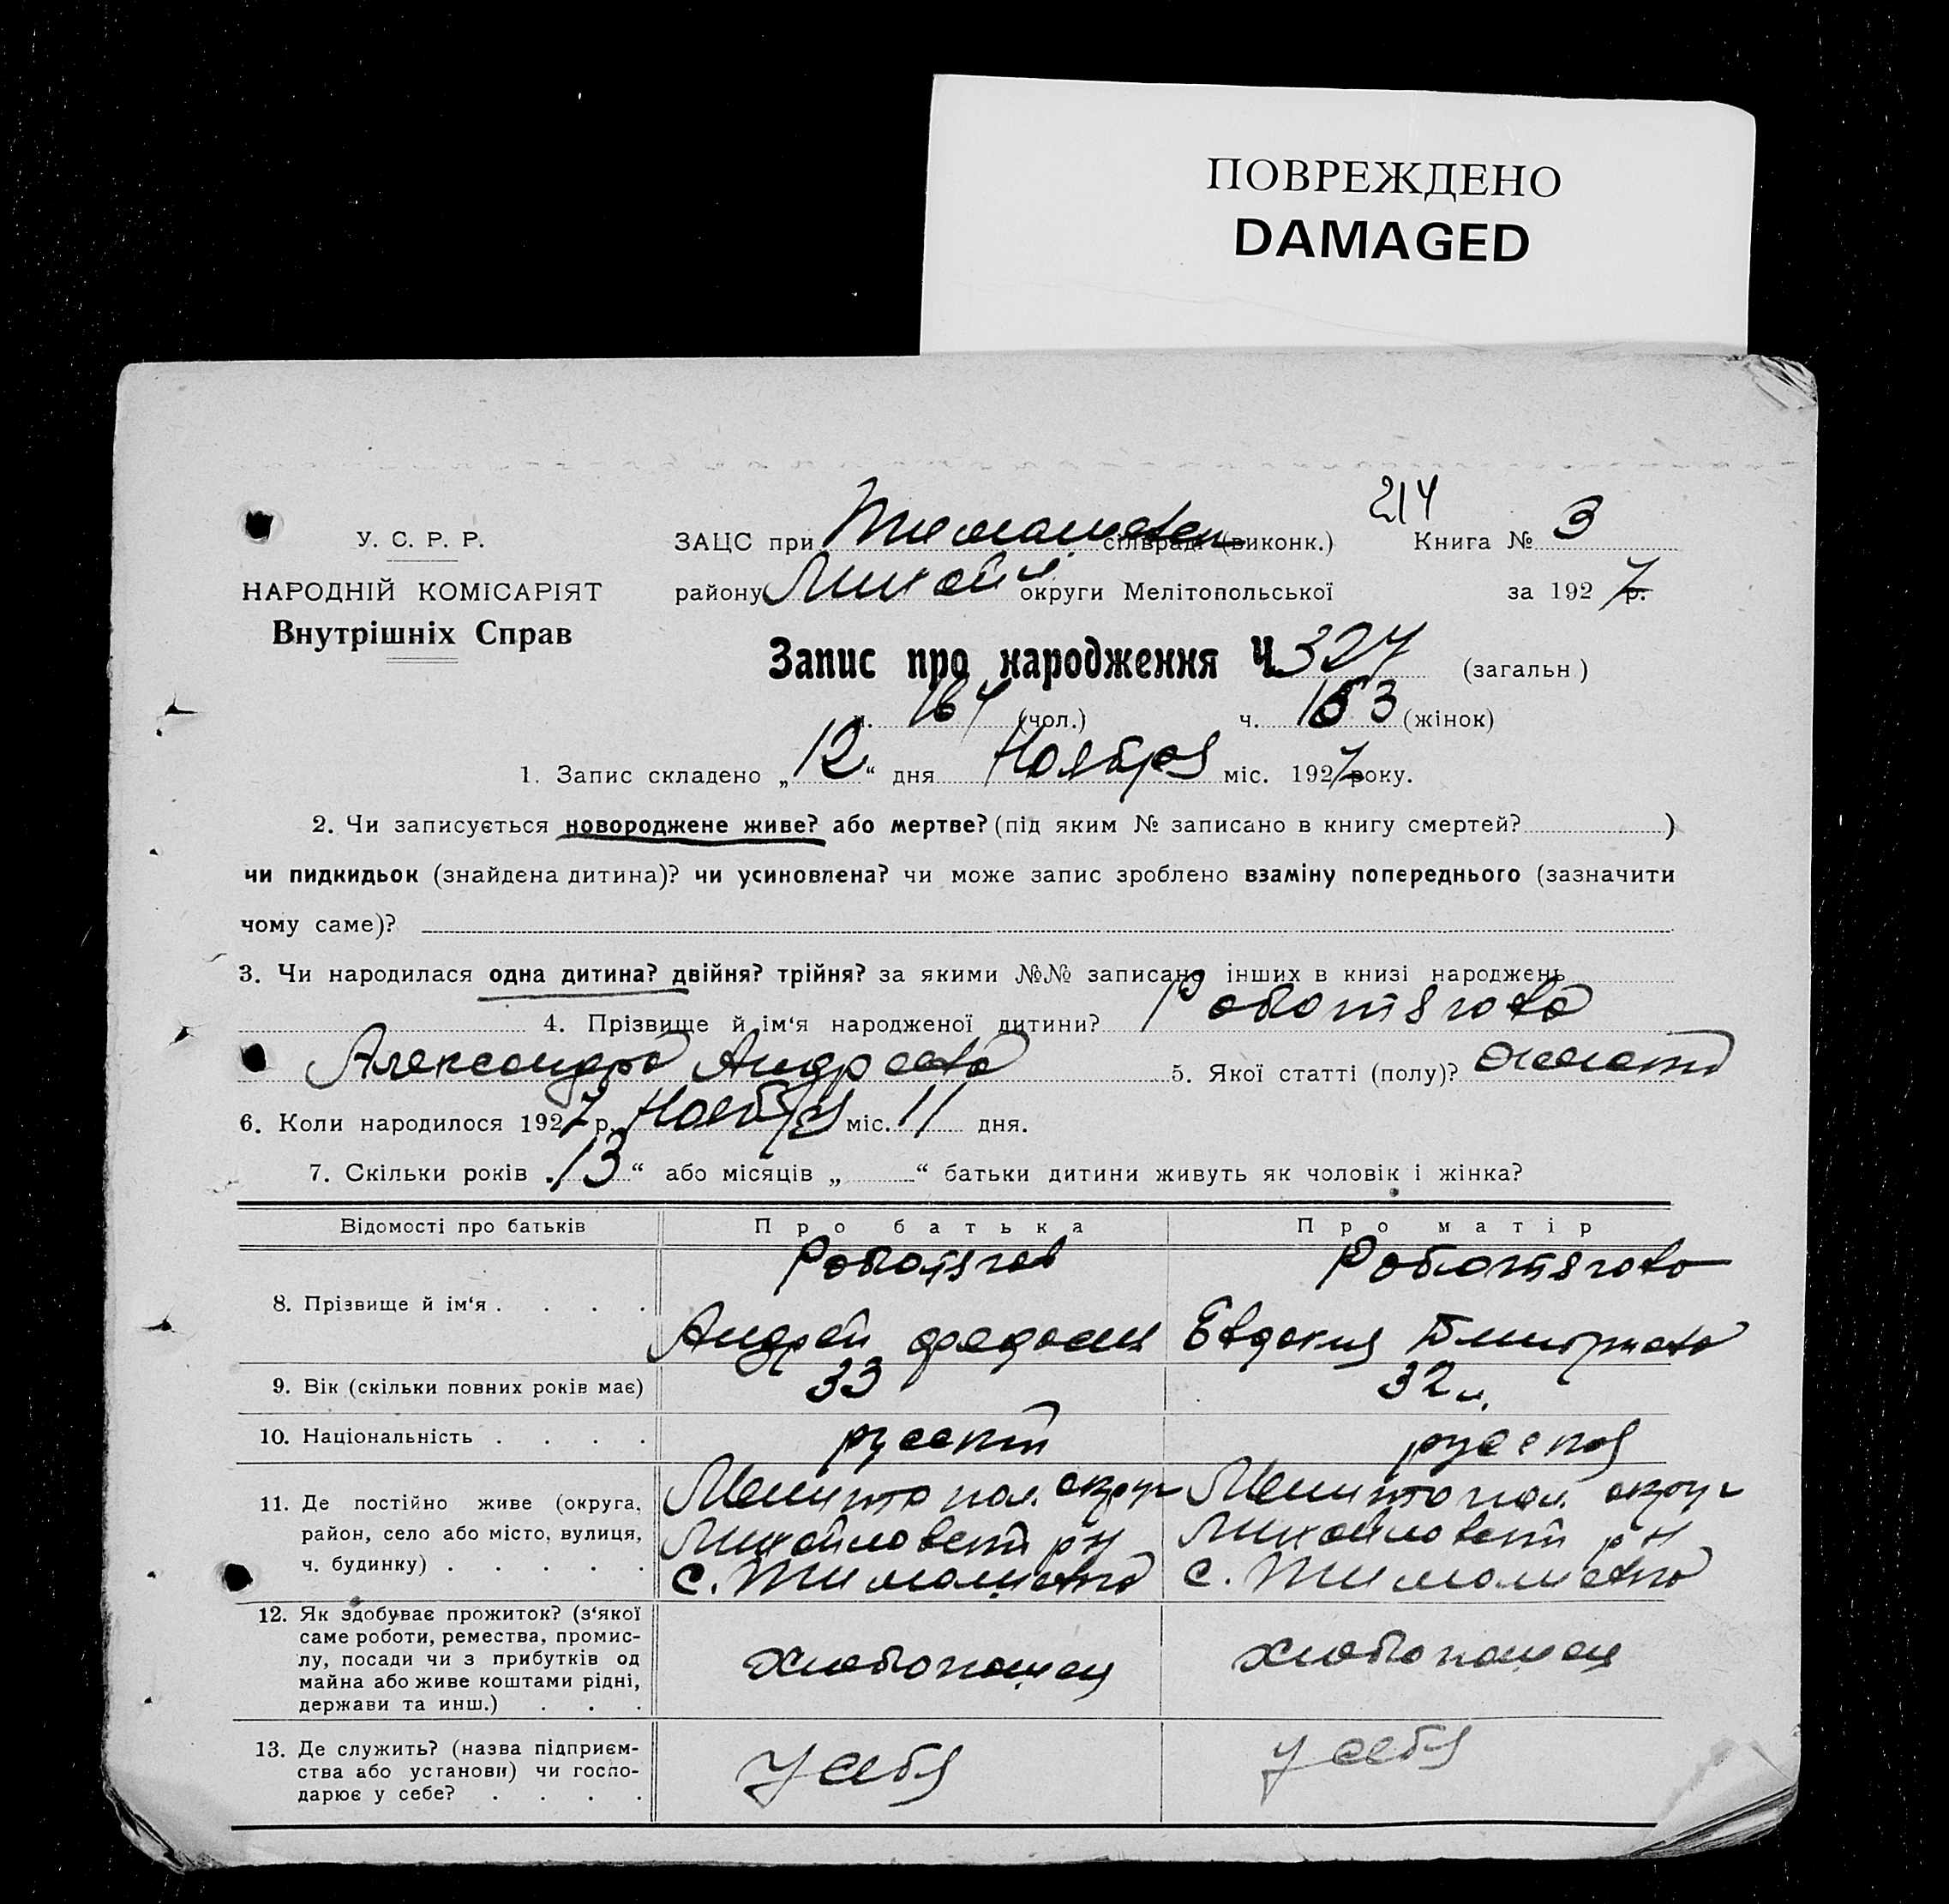 ПОВРЕЖДЕНО
DAMAGED
214
У. С. Р. Р.
ЗАЦС при Тимашевск сільраді (виконк.) Книга № 3
НАРОДНІЙ КОМІСАРІЯТ
району Михай округи Мелітопольської за 1927 р.
Внутрішніх Справ
Запис про народження Ч. 327 (загальн)
ч. 164 (чол.) ч. 163 (жінок)
1. Запис складено „12“ дня Ноября міс. 1927 року.
2. Чи записується новороджене живе? або мертве? (під яким № записано в книгу смертей? )
чи пидкидьок (знайдена дитина)? чи усиновлена? чи може запис зроблено взаміну попереднього (зазначити
чому саме)?
3. Чи народилася одна дитина? двійня? трійня? за якими №№ записано інших в книзі народжень
4. Прізвище й ім‘я народженої дитини? Роботягова
Александра Андреева 5. Якої статті (полу)? женск
6. Коли народилося 1927 р. Ноября міс. 11 дня.
7. Скільки років „13“ або місяців „ “ батьки дитини живуть як чоловік і жінка?
Відомості про батьків Про батька Про матір
8. Прізвище й ім‘я . . . . Роботягов Роботягова
Андрей Евдокия Дмитриева
9. Вік (скільки повних років має) 33 32
10. Національність . . . . русский русская
11. Де постійно живе (округа, район, село або місто, вулиця, ч. будинку) . . . . . Мелитопол. округ Мелитопол. округ
Михайловский рн Михайловский рн
с. Тимашевка с. Тимашевка
12. Як здобуває прожиток? (з‘якої саме роботи, ремества, промислу, посади чи з прибутків од майна або живе коштами рідні, держави та инш.) . . . хлебопашец хлебопашец
13. Де служить? (назва підприємства або установи) чи господарює у себе? . . . . у себя у себя